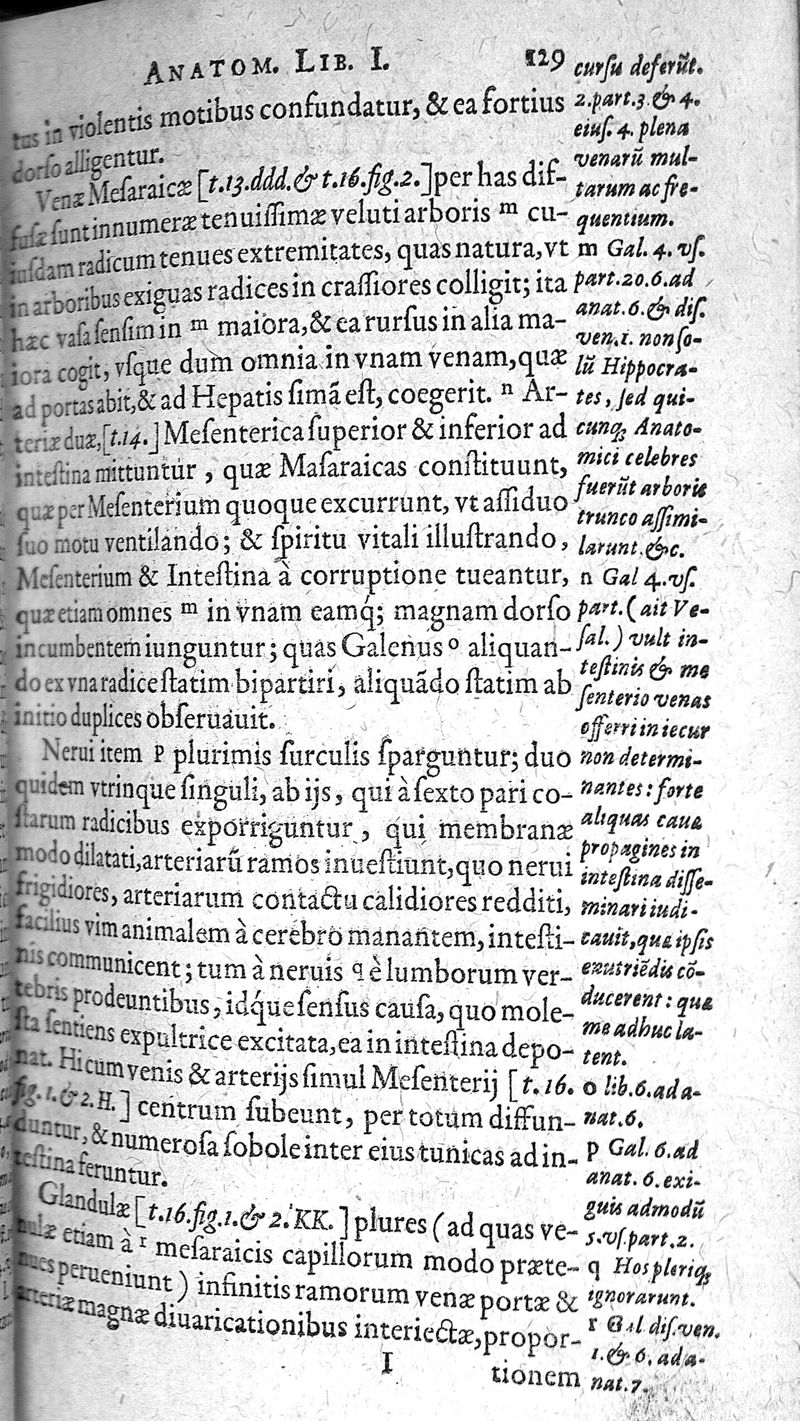 ANATOM. LIB. I. 129
tus in violentis motibus confundatur, & ea fortius
dorso alligentur.
Venæ Mesaraicæ [t.13.ddd.& t.16.fig.2.] per has dif-
fusæ sunt innumeræ tenuissimæ veluti arboris ᵐ cu-
iusdam radicum tenues extremitates, quas natura, vt
in arboribus exiguas radices in crassiores colligit; ita
hæc vasa sensim in ᵐ maiora, & ea rursus in alia ma-
iora cogit, vsque dum omnia in vnam venam, quæ
ad portas abit, & ad Hepatis simā est, coegerit. ⁿ Ar-
teriæ duæ, [t.14.] Mesenterica superior & inferior ad
intestina mittuntur, quæ Masaraicas constituunt,
quæ per Mesenterium quoque excurrunt, vt assiduo
suo motu ventilando; & spiritu vitali illustrando,
Mesenterium & Intestina à corruptione tueantur,
quæ etiam omnes ᵐ in vnam eamq́; magnam dorso
incumbentem iunguntur; quas Galenus ᵒ aliquan-
do ex vna radice statim bipartiri, aliquādo statim ab
initio duplices obseruauit.
Nerui item p plurimis surculis sparguntur; duo
quidem vtrinque singuli, ab ijs, qui à sexto pari co-
starum radicibus exporriguntur, qui membranæ
modo dilatati, arteriarū ramos inuestiunt, quo nerui
frigidiores, arteriarum contactu calidiores redditi,
facilius vim animalem à cerebro manantem, intesti-
nis communicent; tum à neruis q è lumborum ver-
tebris prodeuntibus, idq́ue sensus causa, quo mole-
sta sentiens expultrice excitata, ea in intestina depo-
nat. Hi cum venis & arterijs simul Mesenterij [t.16.
fig.1.& 2.H.] centrum subeunt, per totum diffun-
duntur, & numerosa sobole inter eius tunicas ad in-
testina feruntur.
Glandulæ [t.16.fig.1.& 2.KK.] plures (ad quas ve-
nulæ etiam à ʳ mesaraicis capillorum modo præte-
nues perueniunt) infinitis ramorum venæ portæ &
arteriæ magnæ diuaricationibus interiectæ, propor-
I tionem
cursu deferūt.
2.part.3.& 4.
eius. 4. plena
venarū mul-
tarum ac fre-
quentium.
m Gal. 4. vs.
part.20.6.ad
anat.6.& dis.
ven.1. non so-
lū Hippocra-
tes, sed qui-
cunq; Anato-
mici celebres
fuerūt arboris
trunco assimi-
larunt. &c.
n Gal 4.vs.
part.(ait Ve-
sal.) vult in-
testinis & me
senterio venas
offerri in iecur
non determi-
nantes: forte
aliquas cauæ
propagines in
intestina disse-
minari iudi-
cauit, quæ ipsis
enutriēdis cō-
ducerent: quæ
me adhuc la-
tent.
o lib.6.ad a-
nat.6.
p Gal. 6.ad
anat. 6. exi-
guis admodū
5.vs.part.2.
q Hos pleriq;
ignorarunt.
r Gal dis.ven.
1.& 6. ad a-
nat.7.